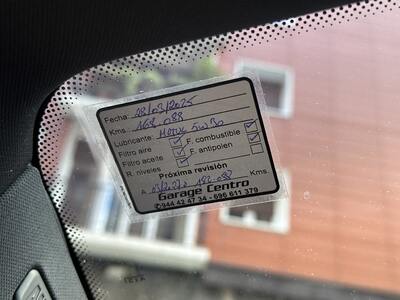 Fecha: 18/03/2025
Kms. 168.088
Lubricante: MOTUL 5W30
Filtro aire F. combustible
Filtro aceite F. antipolen
R. niveles
Próxima revisión
A Kms.
Garage Centro
944 42 47 34 - 696 611 379